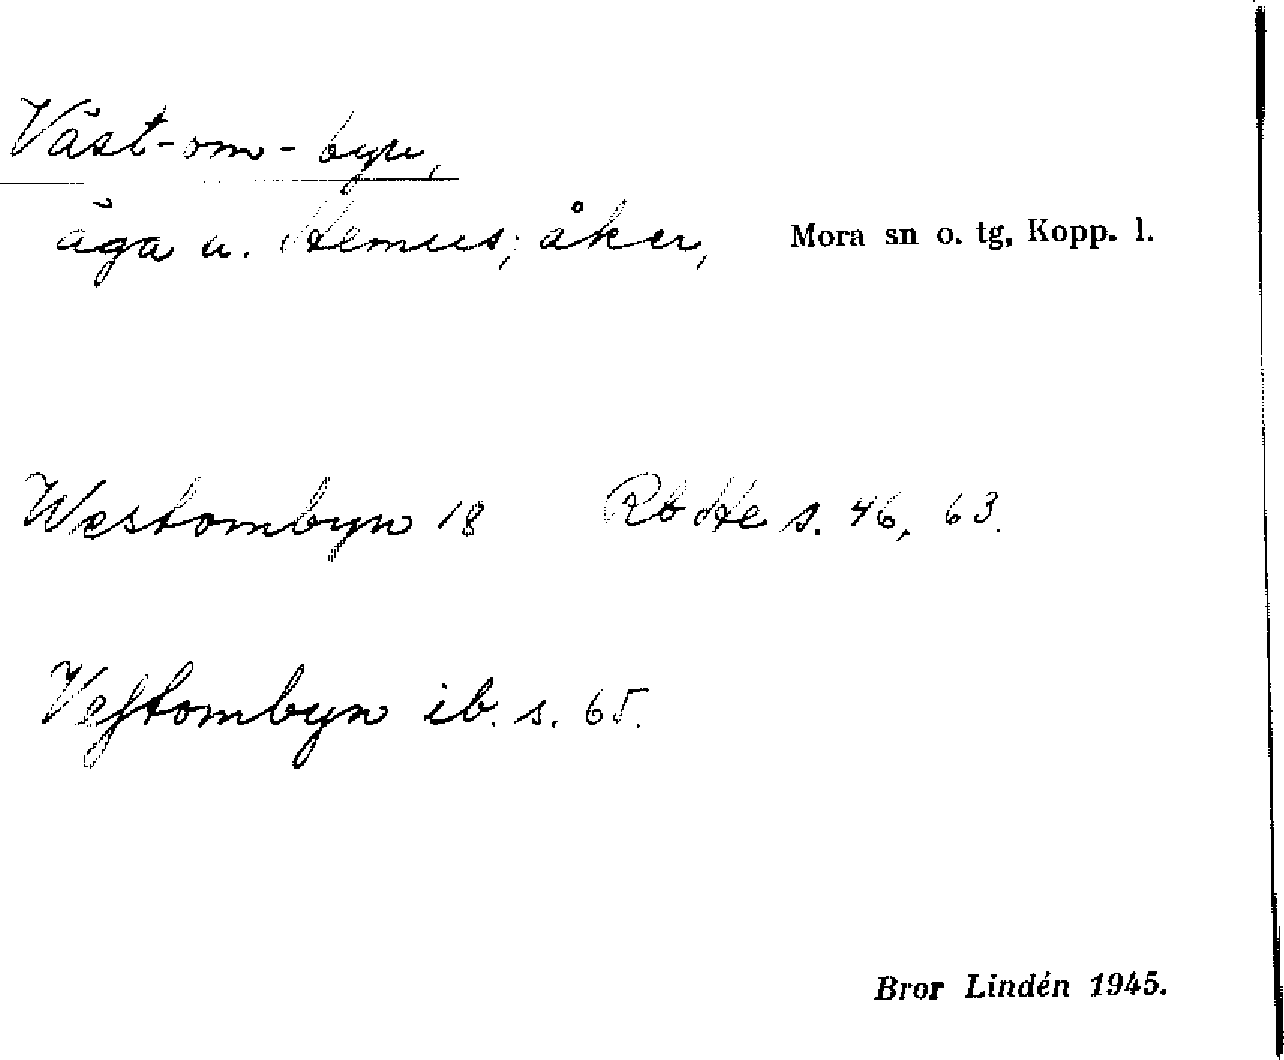 Väst-om-byn,
äga u. Hemus; åker, Mora sn o. tg, Kopp. l.
Westombyn 18 Rb He s. 46, 63.
Veſtombyn ib. s. 65.
Bror Lindén 1945.